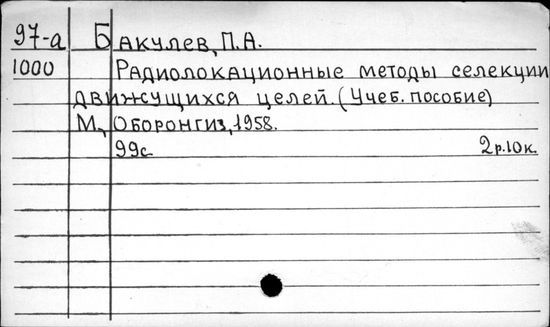 97-а Бакулев, П.А.
1000 Радиолокационные методы селекции
движущихся целей. (Учеб. пособие)
М., Оборонгиз, 1958.
99с 2р.10к.